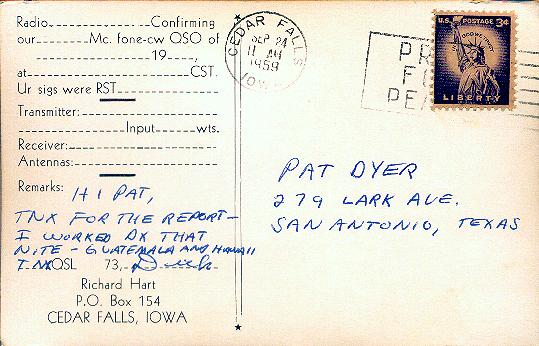 Radio Confirming
our Mc. fone-cw QSO of
19 ,
at CST.
Ur sigs were RST
Transmitter:
Input wts.
Receiver:
Antennas:
Remarks: HI PAT,
TNX FOR THE REPORT—
I WORKED DX THAT
NITE - GUATEMALA AND HAWAII
TNX QSL 73, Dick
Richard Hart
P.O. Box 154
CEDAR FALLS, IOWA
CEDAR FALLS
SEP 24
11 AM
1959
IOWA
PR
F
PE
U.S. POSTAGE 3¢
IN GOD WE TRUST
LIBERTY
PAT DYER
279 LARK AVE.
SAN ANTONIO, TEXAS